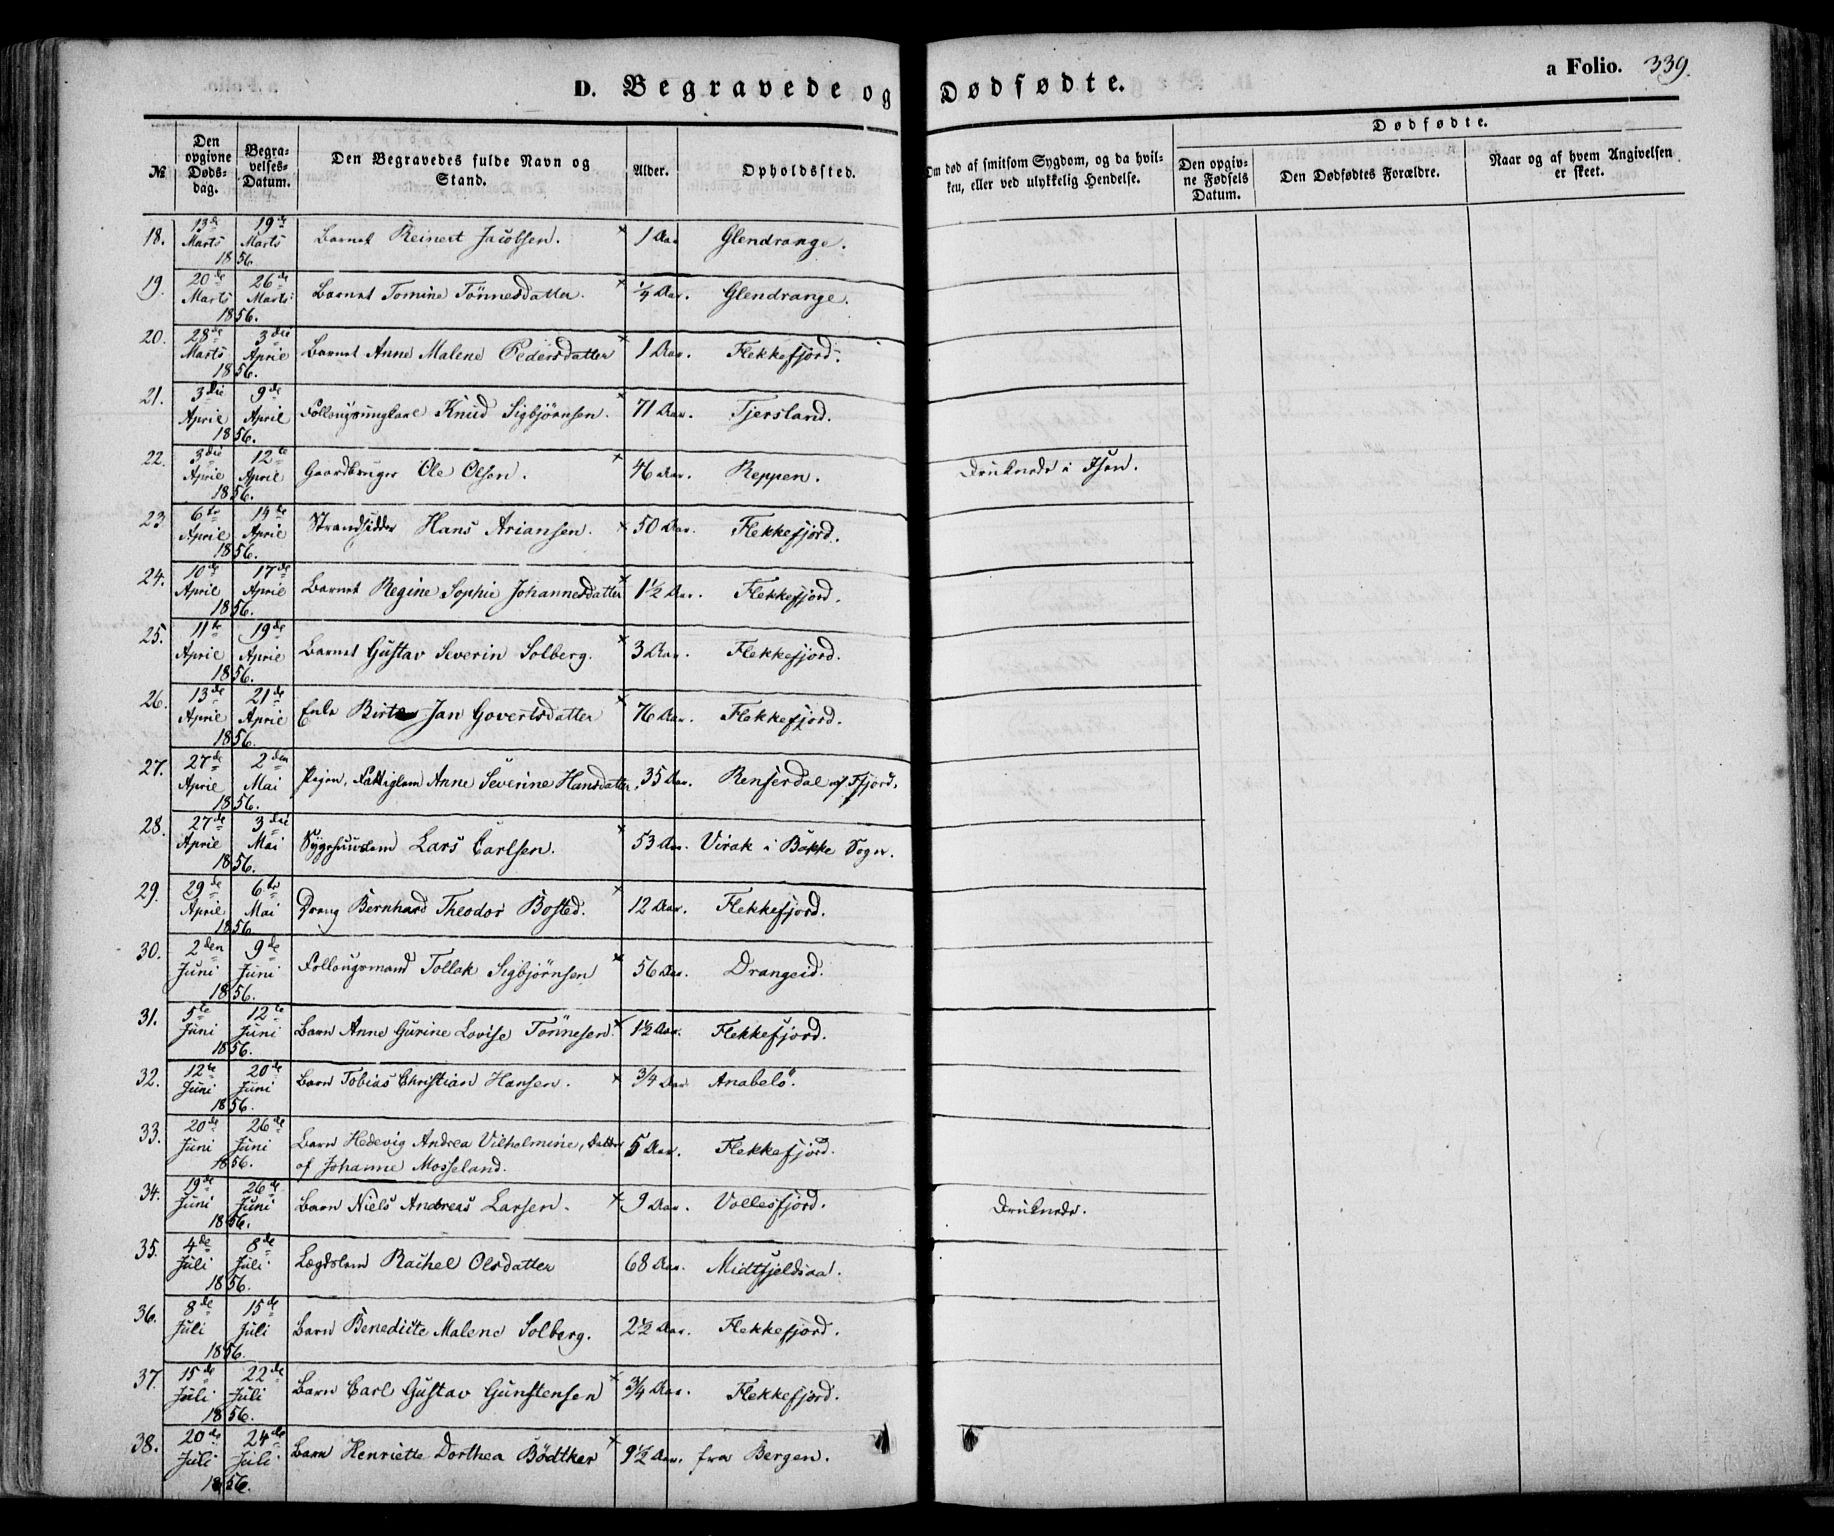 a Folio. 339.
D. Begravede og Dødfødte.
№
Den opgivne Dødsdag.
Begravelses-Datum.
Den Begravedes fulde Navn og Stand.
Alder.
Opholdssted.
Om død af smitsom Sygdom, og da hvilken, eller ved ulykkelig Hendelse.
Dødfødte.
Den opgivne Fødsels Datum.
Den Dødfødtes Forældre.
Naar og af hvem Angivelsen er skeet.
18. 13de Marts 19de Marts 1856. Barnet Reinert Jacobsen. × 1 Aar Glendrange.
19. 20de Marts 26de Marts 1856. Barnet Tomine Tönnesdatter. × Aar. Glendrange.
20. 28de Marts 3die April 1856. Barnet Anne Malene Pedersdatter × 1 Aar. Flekkefjord.
21. 3die April 9de April 1856. Knud Sigbjørnsen. × 71 Aar. Tjersland.
22. 3die April 12te April 1856. Gaardbruger Ole Olsen. × 46 Aar. Reppen. Druknede i Isen.
23 6te April 14de April 1856. Strandsidder Hans Ariansen. × 50 Aar. Flekkefjord.
24. 10de April 17de April 1856. Barnet Regine Sophie Johannesdatter × 1½ Aar. Flekkefjord.
25. 11te April 19de April 1856. Barnet Gustav Severin Solberg. × 3 Aar. Flekkefjord.
26. 13de April 21de April 1856. Enke Birte Jan Govertsdatter × 76 Aar. Flekkefjord.
27. 27de April 2den Mai 1856. Pigen, Fattiglem Anne Severine Hansdatter. 35 Aar. Renserdal af Ffjord.
28. 27de April 3die Mai 1856. Lars Carlsen. × 53 Aar. Virak i Bakke Sogn.
29. 29de April 6te Mai 1856. Dreng Bernhard Theodor Bosted. × 12 Aar. Flekkefjord.
30. 2den Juni 9de Juni 1856. Follougsmand Tollak Sigbjørnsen × 56 Aar. Drangeid.
31. 5te Juni 12te Juni 1856. Barn Anne Gurine Lovise Tönnesen. × 1½ Aar. Flekkefjord.
32. 12te Juni 20de Juni 1856. Barn Tobias Christian Hansen. × 3/4 Aar Anabelö.
33. 20de Juni 26de Juni 1856. Barn Hedevig Andrea Vilhelmine, Datter 5 Aar. Flekkefjord.
af Johanne Mosseland.
34. 19de Juni 26de Juni 1856. Barn Niels Andreas Larsen. × 9 Aar. Vollesfjord. Druknede.
35. 4de Juli 8de Juli 1856. Lægdslem Rachel Olsdatter 68 Aar. Midtfjeldsaa.
36. 8de Juli 15de Juli 1856. Barn Benedicte Malene Solberg. 2½ Aar. Flekkefjord.
37. 15de Juli 22de Juli 1856. Barn Carl Gustav Gunstensen × 3/4 Aar. Flekkefjord.
38. 20de Juli 24de Juli 1856. Barn Henriette Dorthea Bödtker × 9½ Aar. fra Bergen.